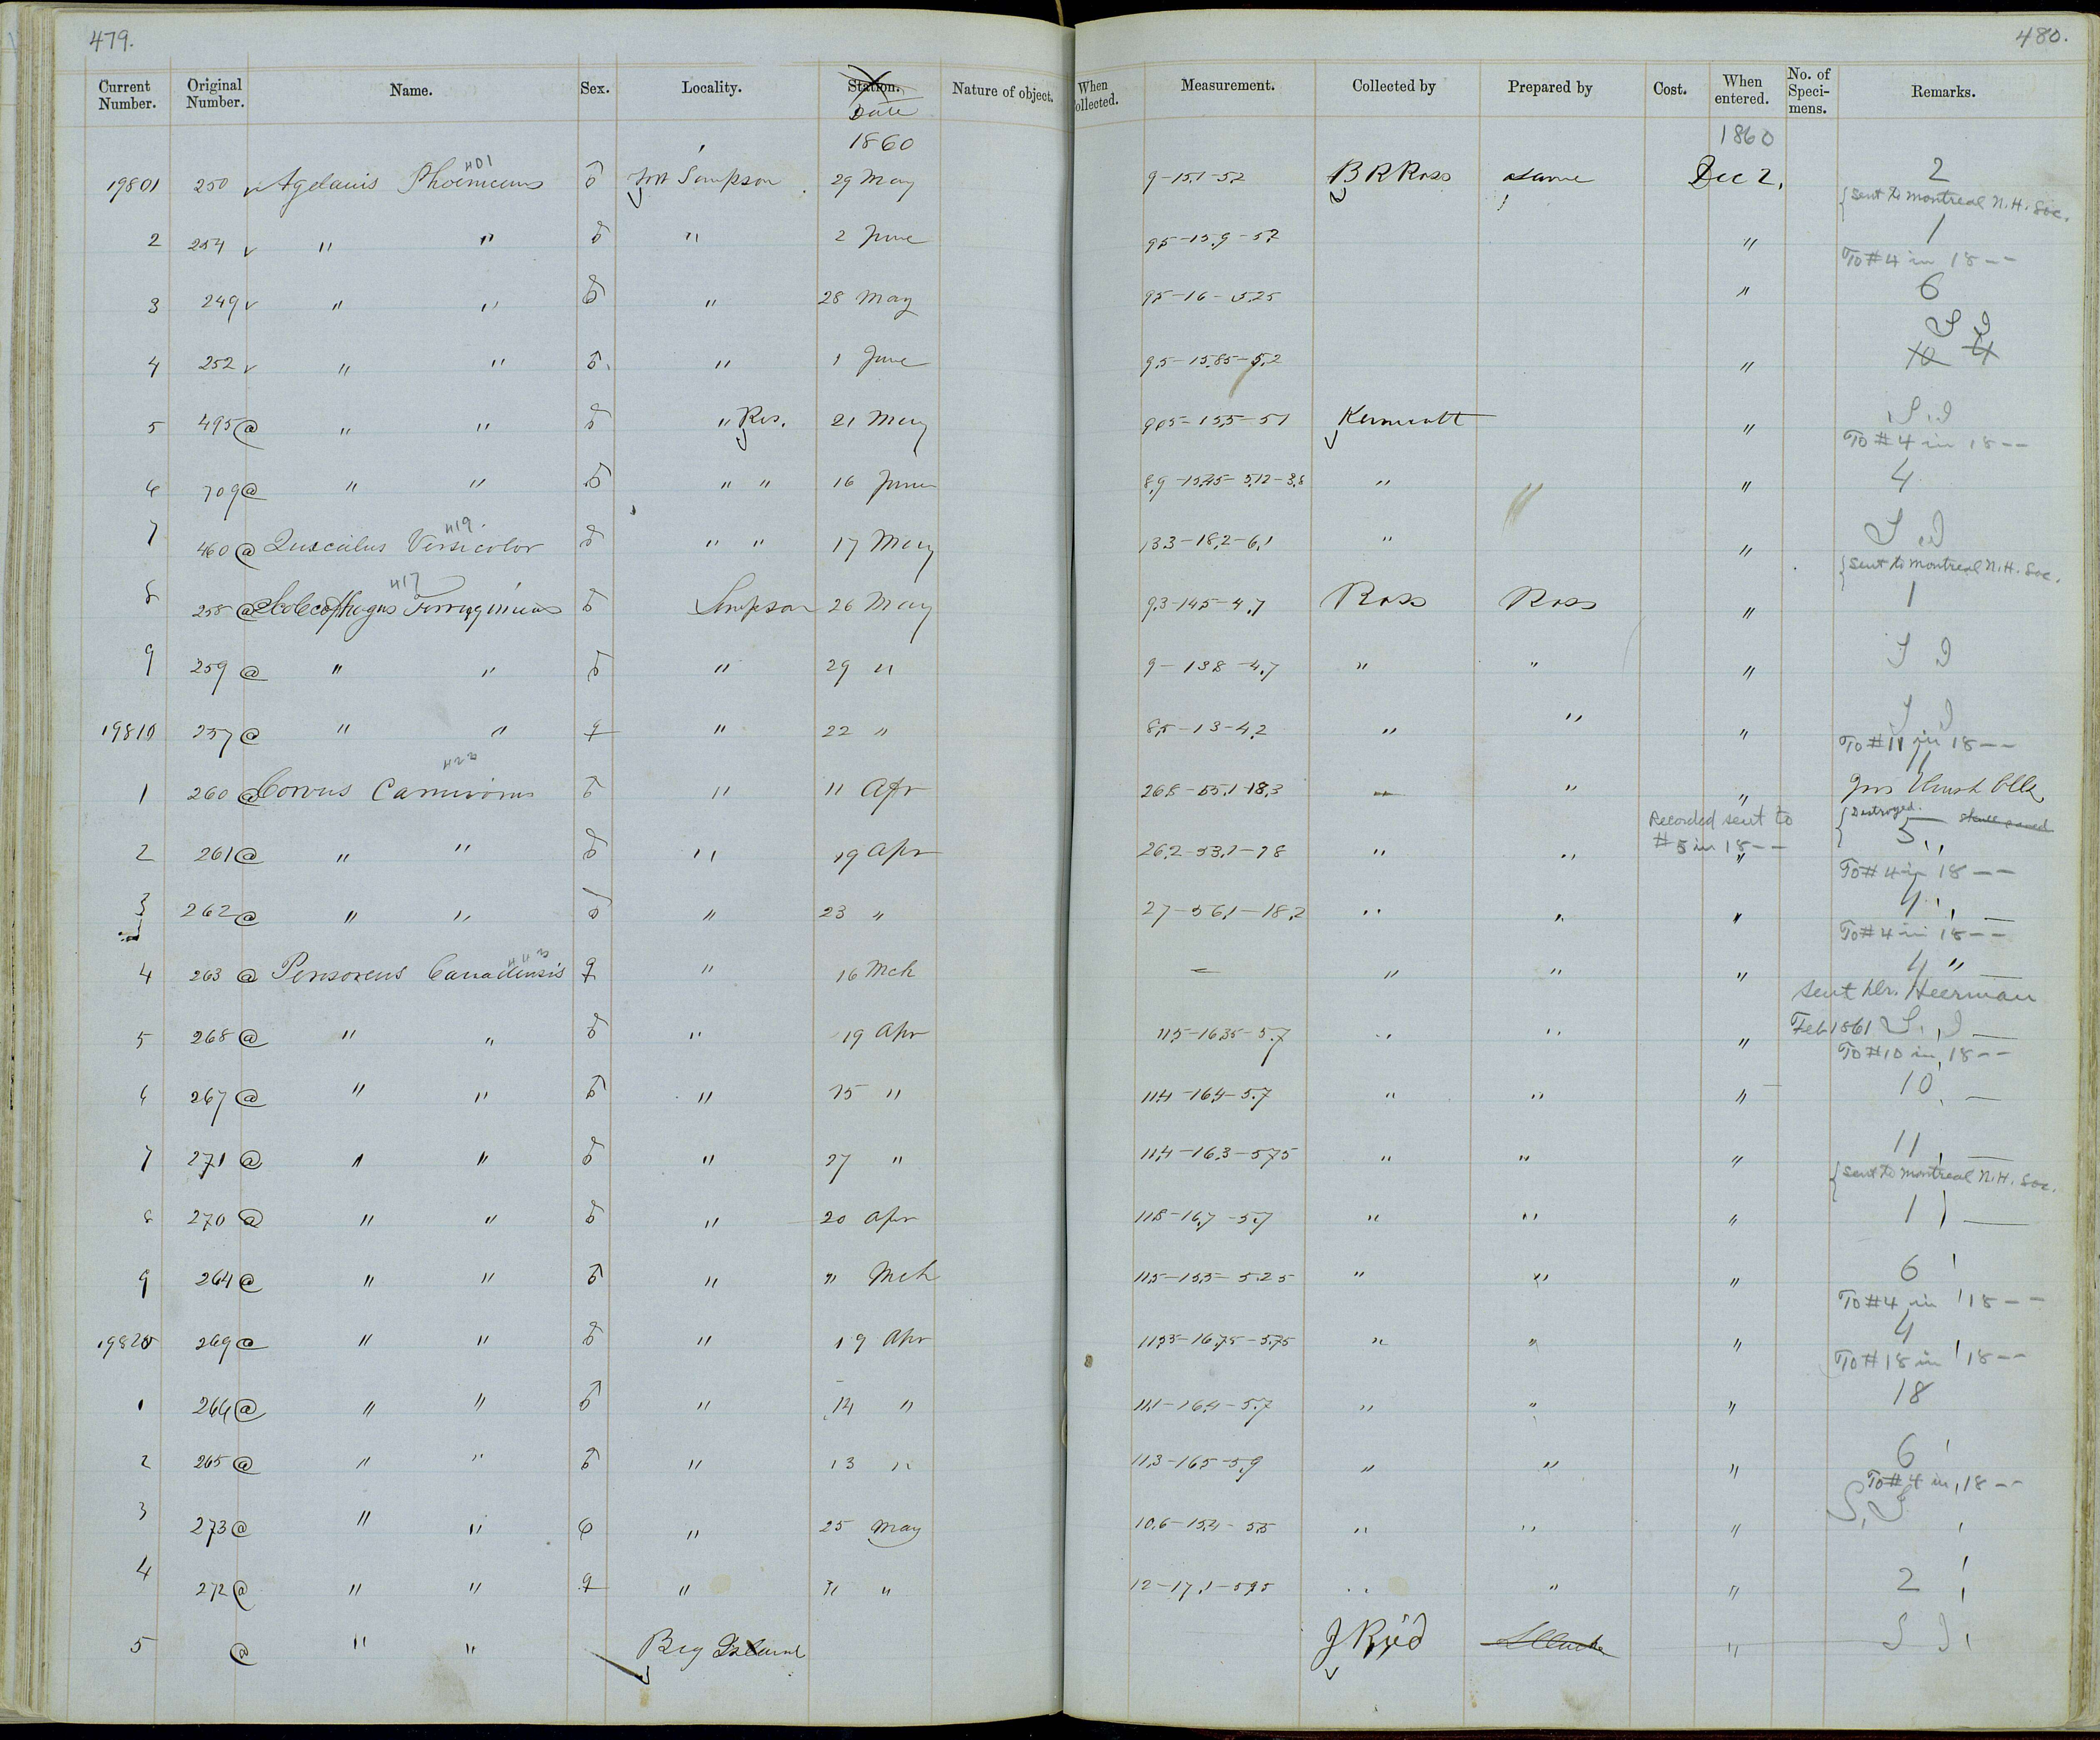 479.
480.
Current Number. Original Number. Name. Sex. Locality. Station. Nature of object. When ollected. Measurement. Collected by Prepared by Cost. When entered. No. of Speci-mens. Remarks.
Date
1860 1860
401 2
19801 250 Agelaius Phoeniceus ♂ Fort Simpson 29 May 9-15.1-5.2 B R Ross same Dec 2.
{Sent to Montreal N.H. Soc.
2 254 " " ♂ " 2 June 95-15.9-5.7 " 1
To #4 in 18--
3 249 " " ♂ " 28 May 9.5-16-5.25 " 6
S I
4 252 " " ♂ " 1 June 9.5-15.85-5.2 " 10 4
5 495@ " " ♂ " Res. 21 May 9.05-15.5-5.1 Kennicott " S I
To #4 in 18--
6 709@ " " ♂ " " 16 June 8.9-15.45-5.12-3.8 " " 4
419
7 460@ Quiscalus Versicolor ♂ " " 17 May 13.3-18.2-6.1 " " S I
{Sent to Montreal N.H. Soc.
417
8 258@ Scolecophagus Ferrugineus ♂ Simpson 26 May 9.3-14.5-4.7 Ross Ross " 1
9 259@ " " ♂ " 29 " 9-13.8-4.7 " " " S I
19810 257@ " " ♀ " 22 " 8.5-13-4.2 " " " S I
To #11 in 18--
11
1 260@ Corvus Carnivorus ♂ " 11 Apr 26.8-55.1-18.3 " " "
Recorded sent to #5 in 18--
{Destroyed. skull saved
2 261@ " " ♂ " 19 Apr 26.2-53.1-18 " " " 5
To #4 in 18--
3 262@ " " ♂ " 23 " 27-56.1-18.2 " " " 4
To #4 in 18--
4 263@ Perisoreus Canadensis ♀ " 16 Mch - " " " 4 "
Sent Dr. Heerman
Feb 1861 S. I
5 268@ " " ♂ " 19 Apr 11.5-16.35-5.7 " " "
To #10 in 18--
6 267@ " " ♂ " 15 " 11.4-16.4-5.7 " " " 10
7 271@ " " ♂ " 27 " 11.4-16.3-5.75 " " " 11
{Sent to Montreal N.H. Soc.
8 270@ " " ♂ " 20 Apr 11.8-16.7-5.7 " " " 1
9 264@ " " ♂ " " Mch 11.5-15.5-5.25 " " " 6
To #4 in 18--
19820 269@ " " ♂ " 19 Apr 11.35-16.75-5.75 " " " 4
To #18 in 18--
1 266@ " " ♂ " 14 " 11.1-16.4-5.7 " " " 18
2 265@ " " ♂ " 13 " 11.3-16.5-5.9 " " " 6
To #4 in 18--
3 273@ " " " 25 May 10.6-15.4-5.5 " " " S. I
4 272@ " " ♀ " " 12-17.1-5.95 " " " 2
5 @ " " Big Island J Reid "  S I